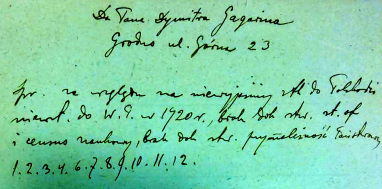 Do Pana Dymitra Gagarina
Grodno ul. Górna 23
Spr. ze względu na niewyjaśniony stł. do
niewst. do W.P. w 1920 r., brak dok. stw. st. of
i cenzus naukowy, brak dok. stw. przynależność Państwową
1.2.3.4.6.7.8.9.10.11.12.